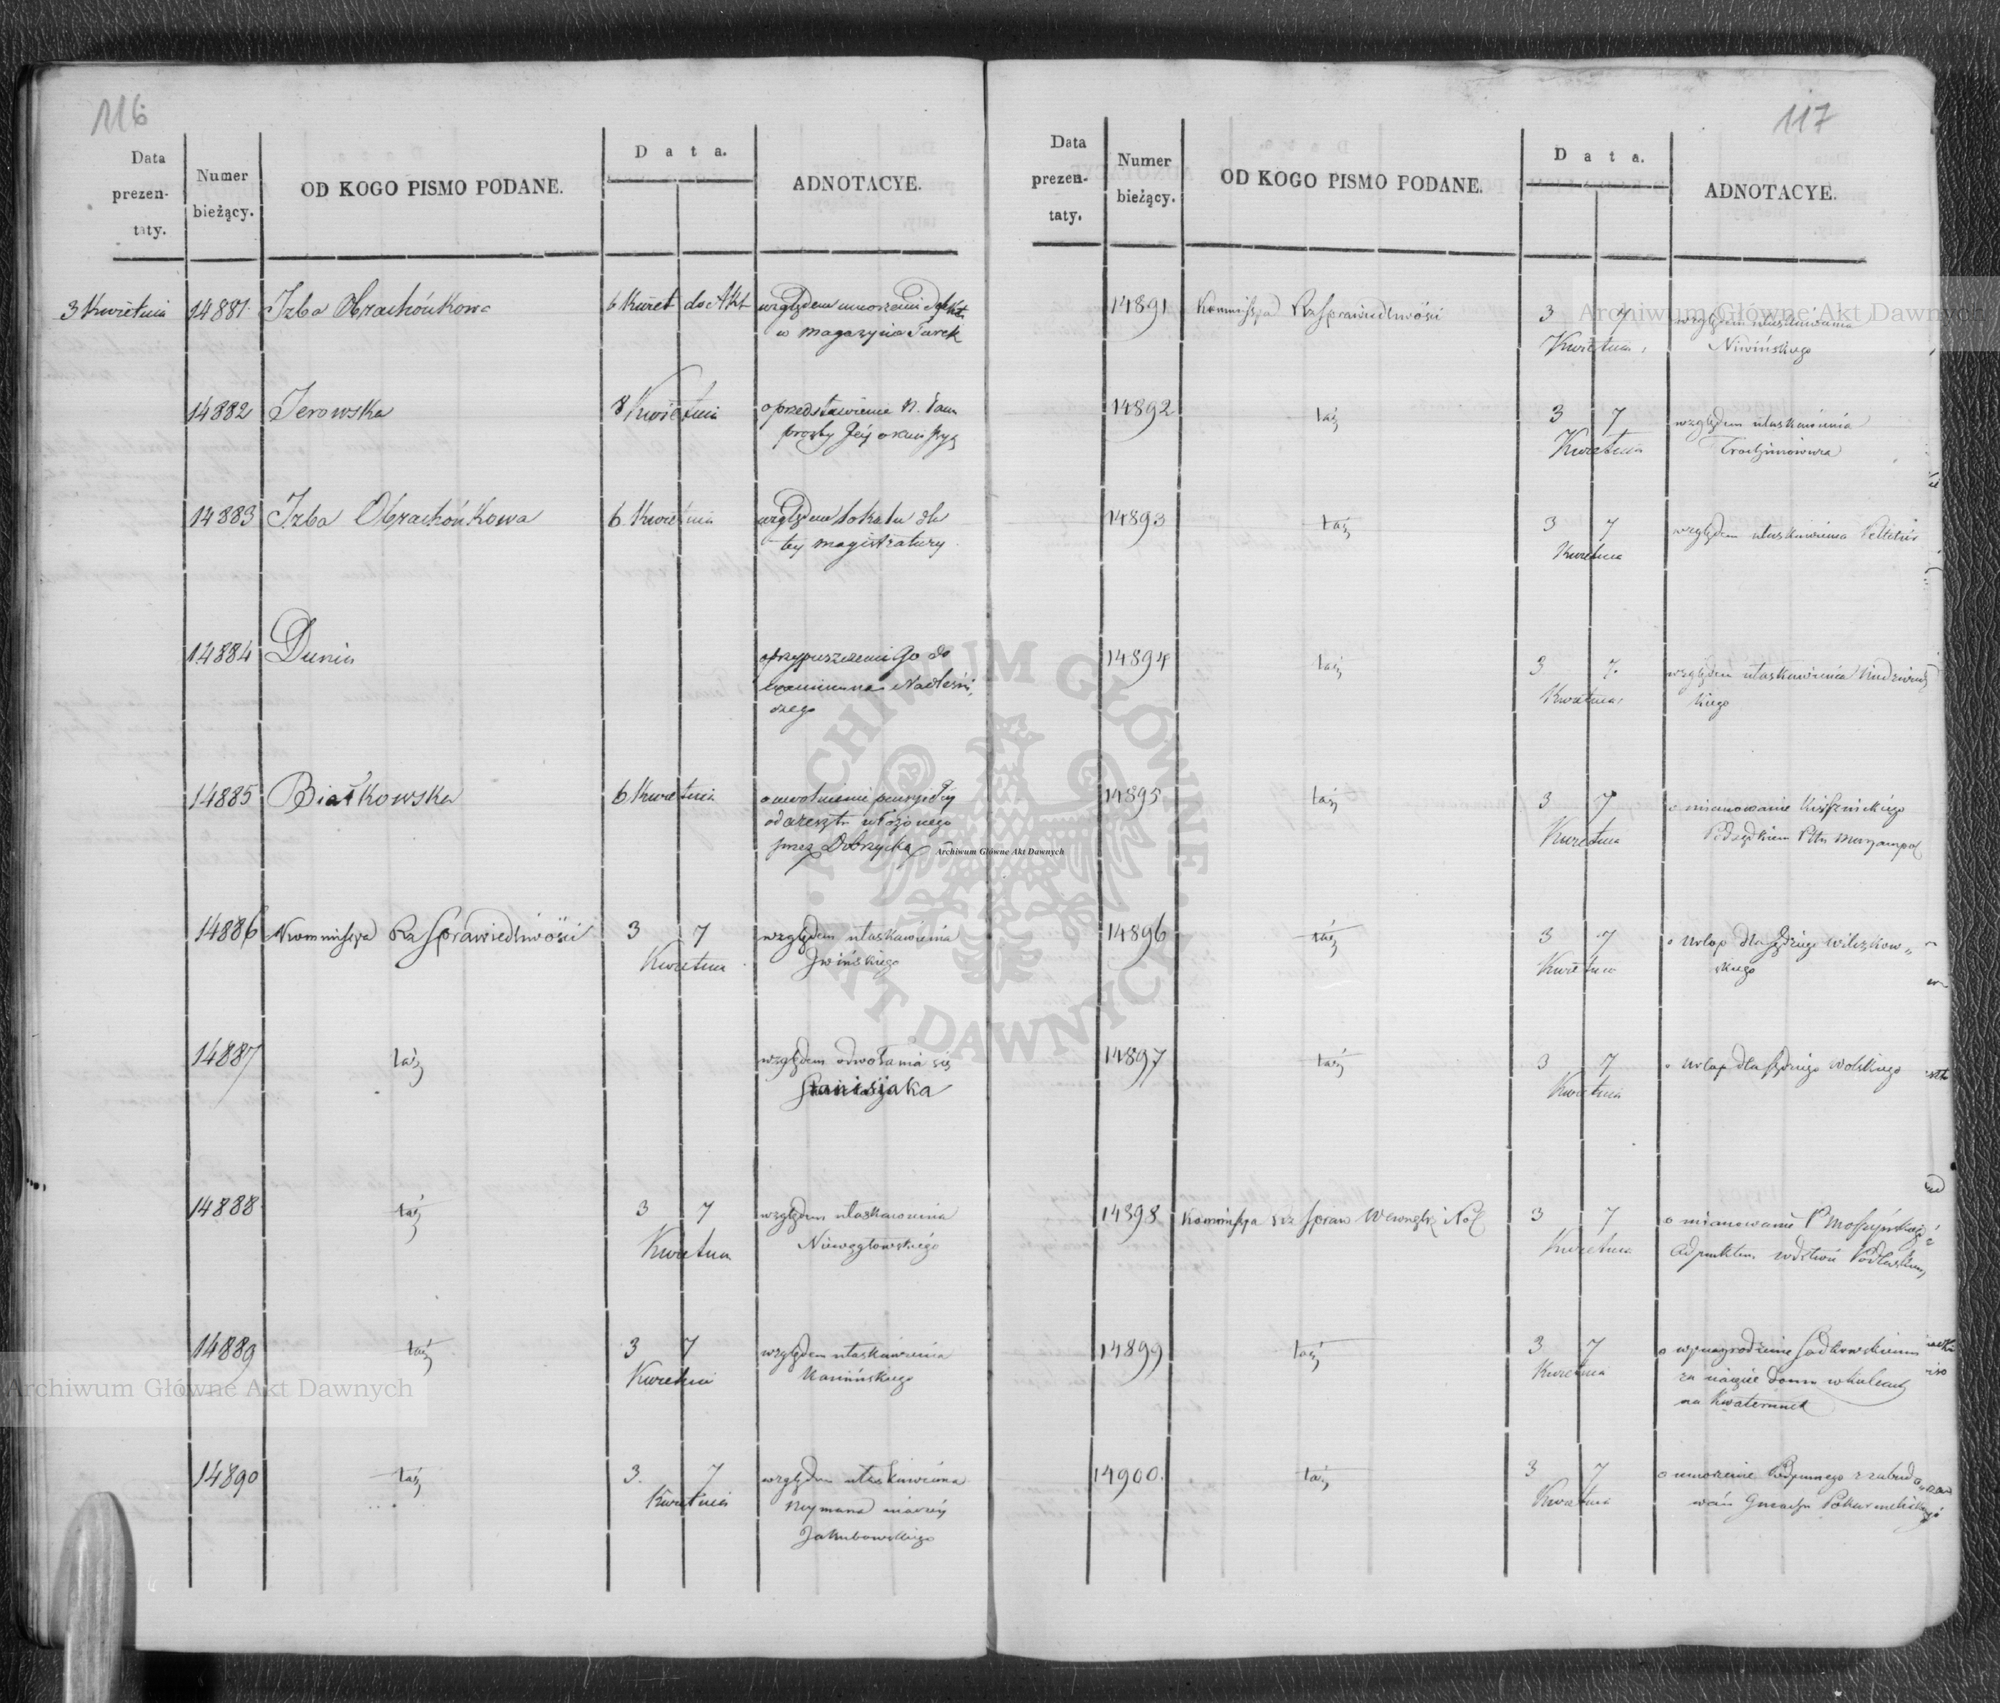 116
Data prezen- taty.
Numer bieżący.
OD KOGO PISMO PODANE.
Data.
ADNOTACYE.
3 Kwietnia 14881 Izba Obrachónkowa 6 Kwiet do Akt względem umorzenia
w magazynie
14882 8 Kwietnia o przedstawienie N. Panu
prośby Jej
14883 Izba Obrachónkowa 6 Kwietnia względem lokalu dla
tey magistratury
14884 Dunin o przypuszczenie Go do
examinu na Nadleśni,
czego
14885 Białkowska 6 Kwietnia o uwolnienie pensyi Jey
od aresztu włożonego
przez Dobrzycką
14886 Kommissya Rz Sprawiedliwości 3 7 względem ułaskawienia
Kwietnia Jwińskiego
14887 taż względem odwołania się
Stanisijaka
14888 taż 3 7 względem ułaskawienia
Kwietnia Niewęgłowskiego
14889 taż 3 7 względem ułaskawienia
Kwietnia Kanińskiego
14890 taż 3. 7 względem ułaskawienia
Kwietnia Neymana inaczey
Jakubowskiego
117
Data prezen- taty.
Numer bieżący.
OD KOGO PISMO PODANE.
Data.
ADNOTACYE.
14891 Kommissya Rz Sprawiedliwości 3 7 względem ułaskawienia
Kwietnia Niwińskiego
14892 taż 3 7 względem ułaskawienia
Kwietnia
14893 taż 3 7 względem ułaskawienia
Kwietnia
14894 taż 3 7. względem ułaskawienia
Kwietnia kiego
14895 taż 3 7 o mianowanie
Kwietnia Podsędkiem Pttu Maryampol
14896 taż 3 7 o urlop dla Sędziego Wilczkow„
Kwietnia skiego
14897 taż 3 7 o urlop dla Sędziego Wolskiego
Kwietnia
14898 Kommissya Rz Spraw Wewnętrz i Pol 3 7 o mianowanie P Moszyńskiego
Kwietnia Adjunktem wdztwa Podlaskiem
14899 taż 3 7 o wynagrodzenie Sadkowskiemu
Kwietnia za najęcie domu w Kielcach
na Kwaterunek
14900. taż 3 7 o umorzenie
Kwietnia
ARCHIWUM GŁÓWNE AKT DAWNYCH
Archiwum Główne Akt Dawnych
Archiwum Główne Akt Dawnych
Archiwum Główne Akt Dawnych